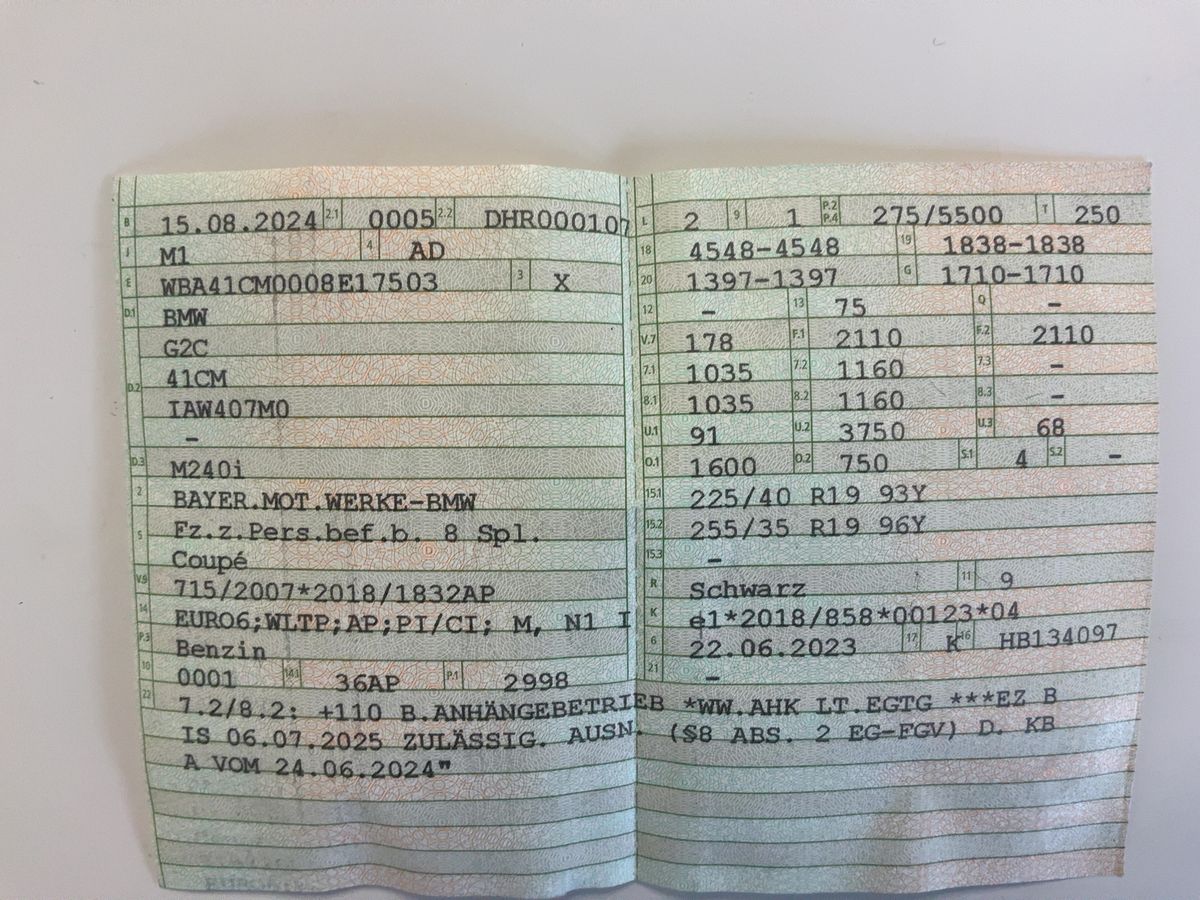 B 15.08.2024 2.1 0005 2.2 DHR000107
J M1 4 AD
E WBA41CM0008E17503 3 X
D.1 BMW
G2C
D.2 41CM
IAW407M0
–
D.3 M240i
2 BAYER.MOT.WERKE-BMW
5 Fz.z.Pers.bef.b. 8 Spl.
Coupé
V.9 715/2007*2018/1832AP
14 EURO6;WLTP;AP;PI/CI; M, N1 I
P.3 Benzin
10 0001 14.1 36AP P.1 2998
L 2 9 1 P.2 P.4 275/5500 T 250
18 4548-4548 19 1838-1838
20 1397-1397 G 1710-1710
12 – 13 75 Q –
V.7 178 F.1 2110 F.2 2110
7.1 1035 7.2 1160 7.3 –
8.1 1035 8.2 1160 8.3 –
U.1 91 U.2 3750 U.3 68
O.1 1600 O.2 750 S.1 4 S.2 –
15.1 225/40 R19 93Y
15.2 255/35 R19 96Y
15.3 –
R Schwarz 11 9
K e1*2018/858*00123*04
6 22.06.2023 17 K 16 HB134097
21 –
22 7.2/8.2: +110 B.ANHÄNGEBETRIEB *WW.AHK LT.EGTG ***EZ B
IS 06.07.2025 ZULÄSSIG. AUSN. (§8 ABS. 2 EG-FGV) D. KB
A VOM 24.06.2024"